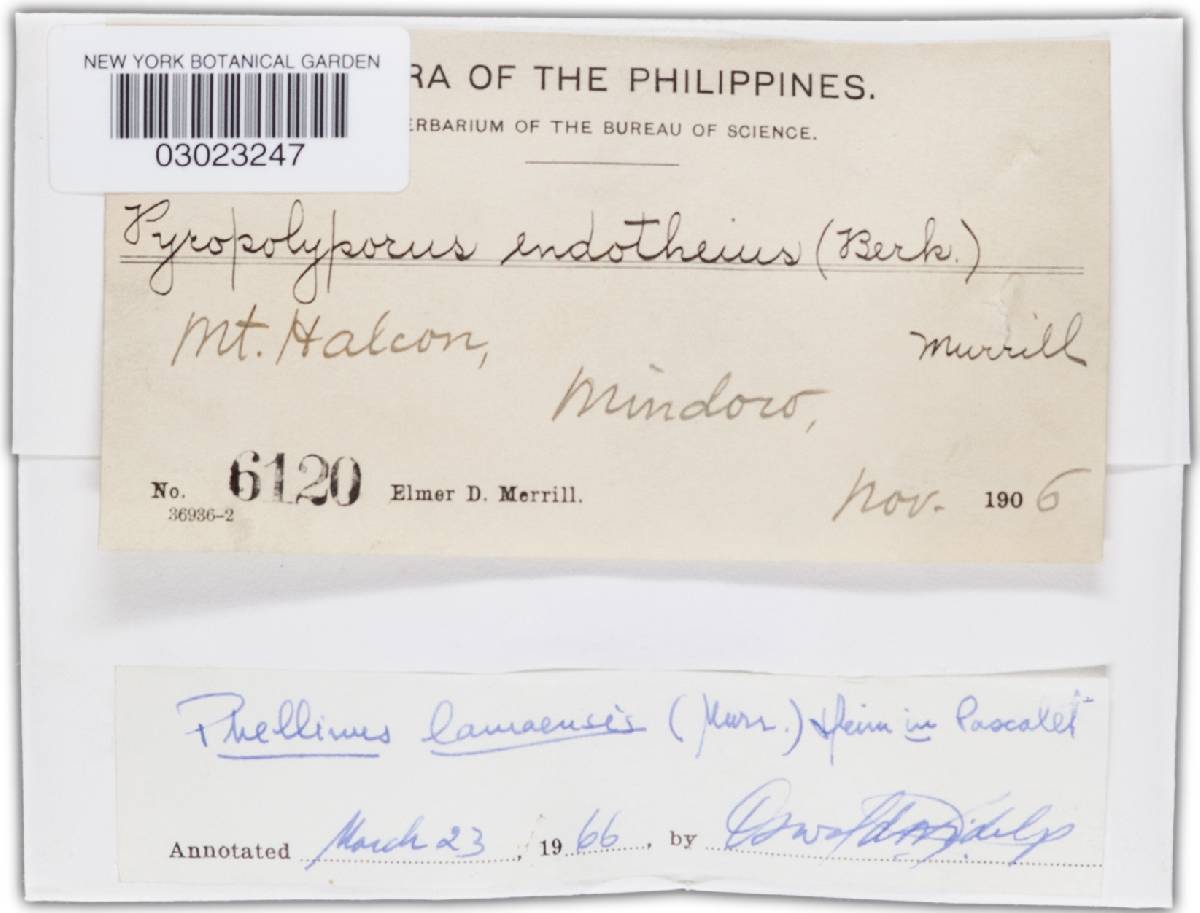 NEW YORK BOTANICAL GARDEN
03023247
RA OF THE PHILIPPINES.
ERBARIUM OF THE BUREAU OF SCIENCE.
Pyropolyporus endotheius (Berk.)
Murrill
Mt. Halcon,
Mindoro,
No. 6120 Elmer D. Merrill.
Nov. 1906
36936-2
Phellinus lamaensis (Murr.) Heim in
Annotated March 23, 1966, by Oswald